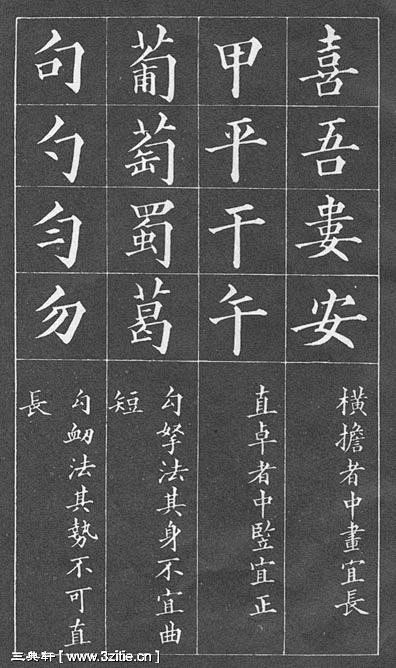 喜吾婁安
橫擔者中畫宜長
甲平干午
直卓者中竪宜正
葡萄蜀葛
勾拏法其身不宜曲
短
句勺勻勿
勾衂法其勢不可直
長
三典轩[www.3zitie.cn]